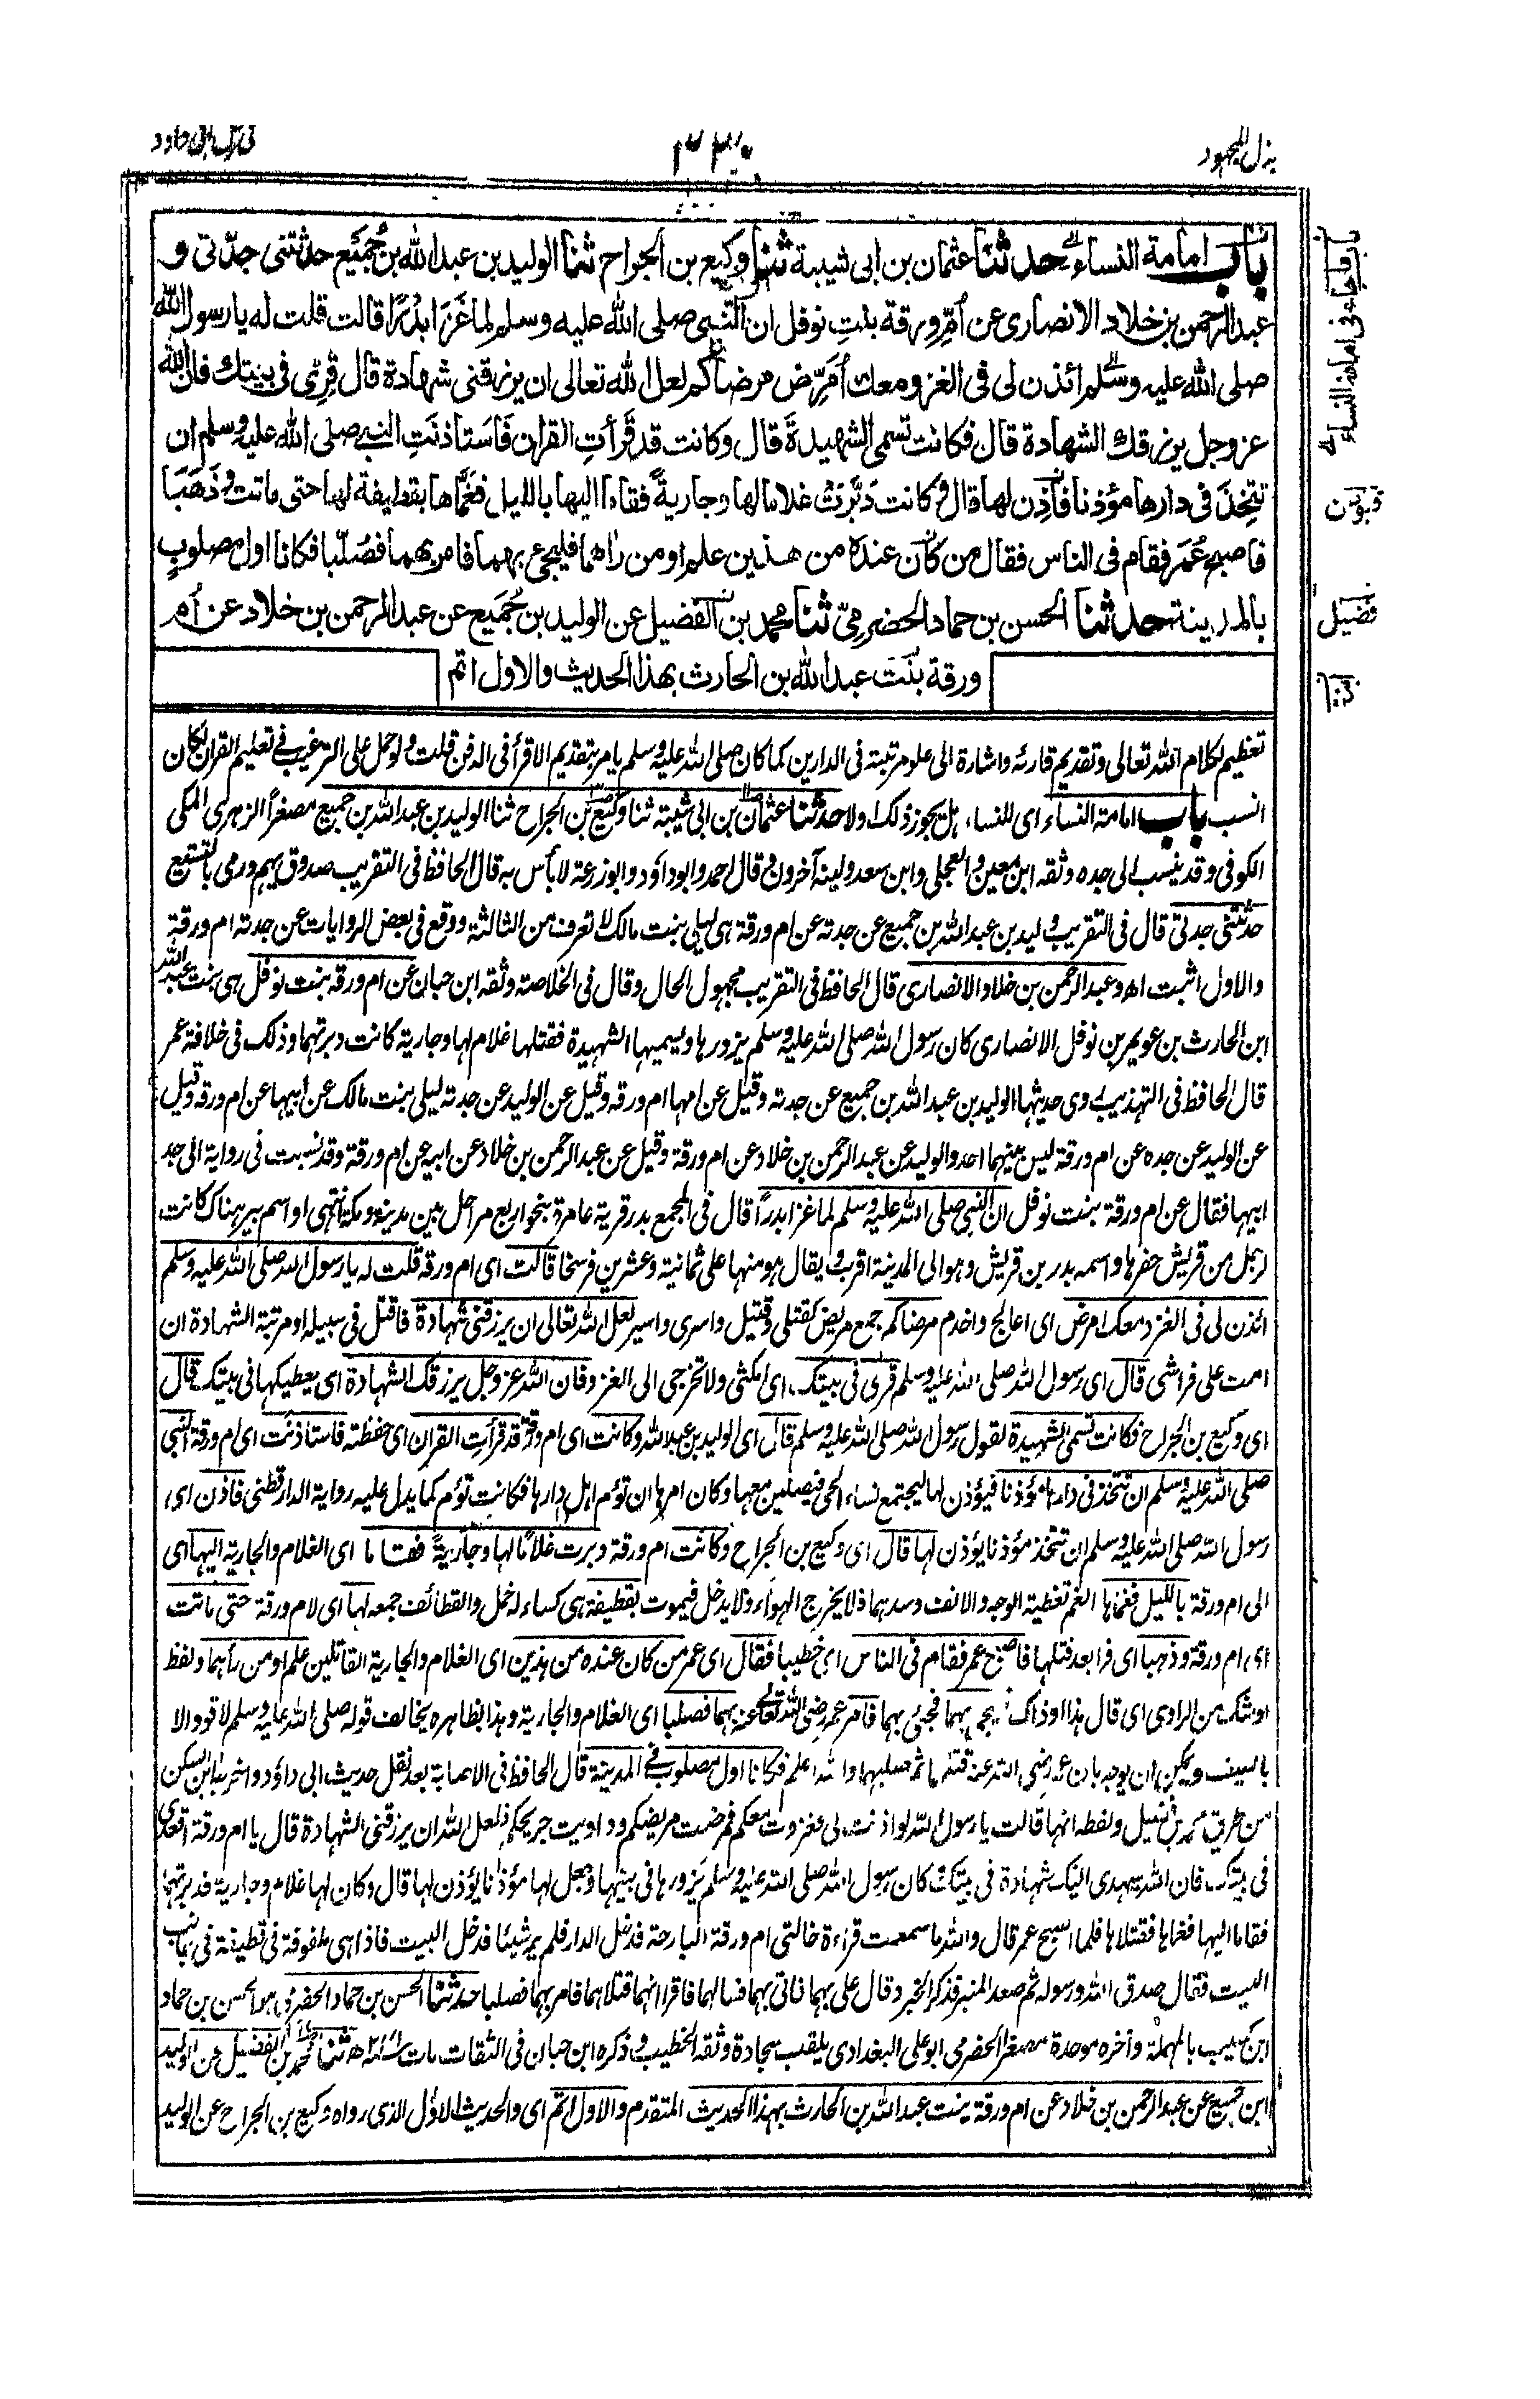 بذل المجهود
٣٣٠
باب امامة النساء حدثنا عثمان بن ابى شيبة ثنا وكيع بن الجراح ثنا الوليد بن عبد الله بن جُمَيع حدثتنى جدّتى و
عبد الرحمن بن خلاد الانصارى عن اُمّ ورقة بنتِ نوفل ان النبى صلى الله عليه وسلم لما غَزَا بدرًا قالت قلت له يا رسول الله
صلى الله عليه وسلم ائذن لى فى الغزو معك اُمَرِّض مرضاكم لعل الله تعالى ان يرزقنى شهادة قال قَرِّى فى بيتك فان الله
عز وجل يرزقك الشهادة قال فكانت تسمى الشهيدةَ قال وكانت قد قَرَأتِ القران فَاسَتاذنَتِ النبى صلى الله عليه وسلم ان
تتخِذَ فى دارها مؤذنا فاَذِن لها قال و كانت دَبَّرَتْ غلاما لها وجاريةً فقاما اليها بالليل فغَمَّاها بقطيفة لها حتى ماتت وذَهَبَا
فاصبح عُمَر فقام فى الناس فقال من كان عنده من هذين علم او من راهما فليجئ بهما فامر بهما فصُلّبا فكانا اول مصلوبٍ
بالمدينة حدثنا الحسن بن حماد الحضرمىّ ثنا محمد بن الفضيل عن الوليد بن جُمَيع عن عبد الرحمن بن خلاد عن اُم
ورقة بنت عبد الله بن الحارث بهذا الحديث والاول اتم
باب ما جاء فى امامة النساء
فضيل
تعظيم لكلام الله تعالى وتقديم قارئه واشارة الى علو مرتبته فى الدارين كما كان صلى الله عليه وسلم يامر بتقديم الاقرأ فى الدفن قلت ولو حمل على الترغيب فى تعليم القران لكان
انسب باب امامة النساء اى للنساء هل يجوز ذلك ولا حدثنا عثمان بن ابى شيبة ثنا وكيع بن الجراح ثنا الوليد بن عبد الله بن جميع مصغرا الزهرى المكى
الكوفى وقد ينسب الى جده وثقه ابن معين والعجلى وابن سعد ولينه آخرون وقال احمد وابو داؤد وابو زرعة لا بأس به قال الحافظ فى التقريب صدوق يهم ورمى بالتشيع
حدثتنى جدتى قال فى التقريب وليد بن عبد الله بن جميع عن جدته عن ام ورقة هى ليلى بنت مالك لا تعرف من الثالثة ووقع فى بعض الروايات عن جدته ام ورقة
والاول اثبت اه وعبد الرحمن بن خلاد الانصارى قال الحافظ فى التقريب مجهول الحال وقال فى الخلاصة وثقه ابن حبان عن ام ورقه بنت نوفل هى بنت عبد الله
ابن الحارث بن عويمر بن نوفل الانصارى كان رسول الله صلى الله عليه وسلم يزورها ويسميها الشهيدة فقتلها غلام لها وجارية كانت دبرتهما وذلك فى خلافة عمر
قال الحافظ فى التهذيب روى حديثها الوليد بن عبد الله بن جميع عن جدته وقيل عن امها ام ورقه وقيل عن الوليد عن جدته ليلى بنت مالك عن أبيها عن ام ورقه وقيل
عن الوليد عن جده عن ام ورقة ليس بينهما احد والوليد عن عبد الرحمن بن خلاد عن ام ورقة وقيل عن عبد الرحمن بن خلاد عن ابيه عن ام ورقة وقد نسبت فى رواية الى جد
ابيها فقال عن ام ورقة بنت نوفل ان النبى صلى الله عليه وسلم لما غزا بدراً قال فى المجمع بدر قرية عامرة بنحو اربع مراحل بين مدينه ومكة انتهى او اسم بير هناك كانت
لرجل من قريش حفرها واسمه بدر بن قريش وهو الى المدينة اقرب ويقال هو منها على ثمانية وعشرين فرسخا قالت اى ام ورقه قلت له يا رسول الله صلى الله عليه وسلم
ائذن لى فى الغزو معك امرض اى اعالج واخدم مرضاكم جمع مريض كقتلى وقتيل واسرى واسير لعل الله تعالى ان يرزقنى شهادة فاقتل فى سبيله او مرتبة الشهادة ان
امت على فراشى قال اى رسول الله صلى الله عليه وسلم قرى فى بيتك اى امكثى ولا تخرجى الى الغزو فان الله عز وجل يرزقك الشهادة اى يعطيكها فى بيتك قال
اى وكيع بن الجراح فكانت تسمى الشهيدة لقول رسول الله صلى الله عليه وسلم قال اى الوليد بن عبد الله وكانت اى ام ورقة قد قرأت القران اى حفظته فاستاذنت اى ام ورقة النبى
صلى الله عليه وسلم ان تتخذ فى دارها مؤذنا فيؤذن لها ليجتمع نساء الحى فيصلين معها وكان امرها ان تؤم اهل دارها فكانت تؤم كما يدل عليه رواية الدارقطنى فاذن اى
رسول الله صلى الله عليه وسلم ان تتخذ مؤذنا يؤذن لها قال اى وكيع بن الجراح وكانت ام ورقة دبرت غلامًا لها وجاريةً فقاما اى الغلام والجارية اليها اى
الى ام ورقة بالليل فغماها الغم تغطية الوجه والانف وسدهما فلا يخرج الهواء ولا يدخل فيموت بقطيفة هى كساء له خمل والقطائف جمعه لها اى لام ورقة حتى ماتت
اى ام ورقة وذهبا اى فرا بعد قتلها فاصبح عمر فقام فى الناس اى خطيبا فقال اى عمر من كان عنده من هذين اى الغلام والجارية القاتلين علم او من رأهما ولفظ
او شك من الراوى اى قال هذا او ذاك فليجئ بهما فجيئ بهما فامر عمر رضى الله تعالى عنه بهما فصلبا اى الغلام والجارية وهذا بظاهره يخالف قوله صلى الله عليه وسلم لا قود الا
بالسيف ويمكن ان يوجه بان عمر رضى الله عنه قتلهما ثم صلبهما والله اعلم فكانا اول مصلوب فى المدينة قال الحافظ فى الاصابة بعد نقل حديث ابى داؤد واخرجه ابن السكن
من طريق محمد بن فضيل ولفظه انها قالت يا رسول الله لو اذنت لى فغزوت معكم فمرضت مريضكم وداويت جريحكم فلعل الله ان يرزقنى الشهادة قال يا ام ورقة اقعدى
فى بيتك فان الله سيهدى اليك شهادة فى بيتك وكان رسول الله صلى الله عليه وسلم يزورها فى بيتها وجعل لها مؤذنا يؤذن لها قال وكان لها غلام وجارية فدبرتهما
فقاما اليها فغماها فقتلاها فلما اصبح عمر قال والله ما سمعت قراءة خالتى ام ورقة البارحة فدخل الدار فلم ير شيئا فدخل البيت فاذا هى ملفوفة فى قطيفة فى جانب
البيت فقال صدق الله ورسوله ثم صعد المنبر فذكر الخبر وقال على بهما فاتى بهما فسالهما فاقرا انهما قتلاهما فامر بهما فصلبا حدثنا الحسن بن حماد الحضرمى هو الحسن بن حماد
ابن كسيب بالمهملة وآخره موحدة مصغرا الحضرمى ابو على البغدادى يلقب سجادة وثقه الخطيب وذكره ابن حبان فى الثقات مات ٢٤١ه ثنا محمد بن الفضيل عن الوليد
ابن جميع عن عبد الرحمن بن خلاد عن ام ورقة بنت عبد الله بن الحارث بهذا الحديث المتقدم والاول اتم اى والحديث الاول الذى رواه وكيع بن الجراح عن الوليد